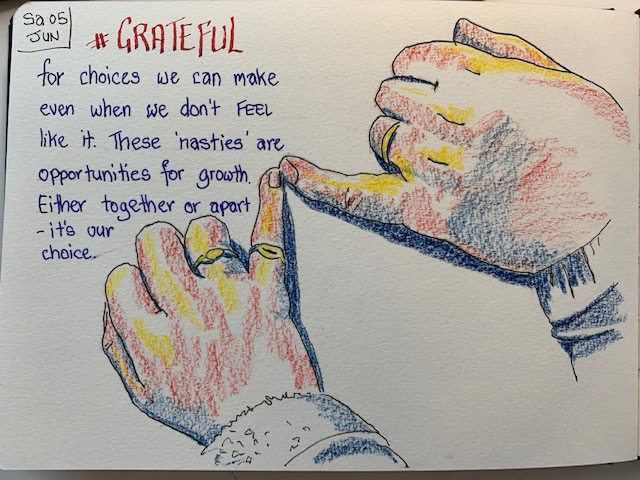 Sa 05
JUN
# GRATEFUL
for choices we can make
even when we don't FEEL
like it. These 'nasties' are
opportunities for growth.
Either together or apart
- it's our
choice.